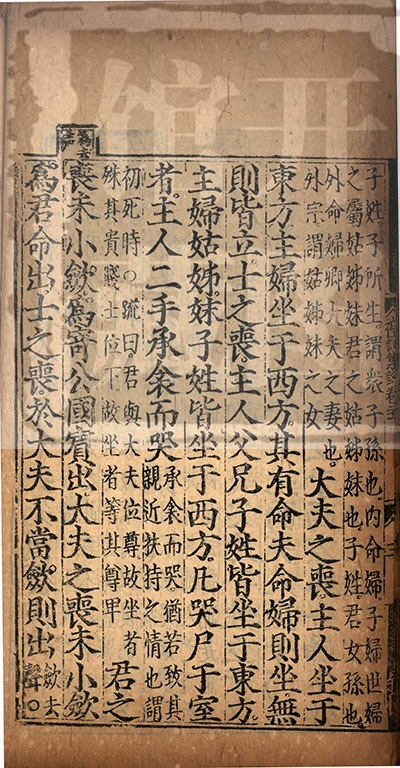 子姓子所生謂衆子孫也內命婦子婦世婦
之屬姑姊妹君之姑姊妹也子姓君女孫也
外命婦卿大夫之妻也
外宗謂姑姊妹之女
大夫之喪主人坐于
東方主婦坐于西方其有命夫命婦則坐無
則皆立士之喪主人父兄子姓皆坐于東方
主婦姑姊妹子姓皆坐于西方凡哭尸于室
者主人二手承衾而哭
承衾而哭猶若致其
親近扶持之情也謂
初死時○疏曰君與大夫位尊故坐者
殊其貴賤士位下故坐者等其尊卑
君之
喪未小斂爲寄公國賓出大夫之喪未小斂
爲君命出士之喪於大夫不當斂則出
斂去
聲○